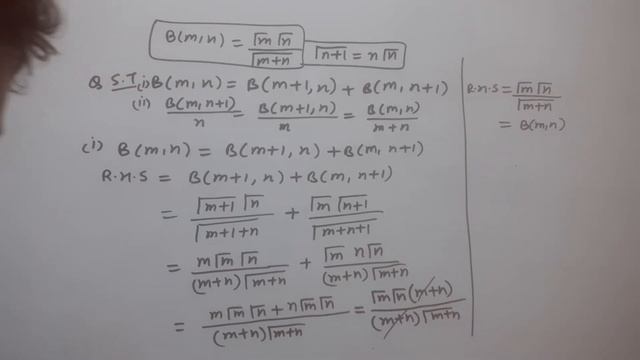 B(m,n) = Γm Γn / Γm+n   Γn+1 = n Γn
Q S.T (i) B(m,n) = B(m+1,n) + B(m,n+1)
(ii) B(m,n+1) / n = B(m+1,n) / m = B(m,n) / m+n
(i) B(m,n) = B(m+1,n) + B(m,n+1)
R.H.S = B(m+1,n) + B(m,n+1)
= Γm+1 Γn / Γm+1+n + Γm Γn+1 / Γm+n+1
= m Γm Γn / (m+n) Γm+n + Γm n Γn / (m+n) Γm+n
= m Γm Γn + n Γm Γn / (m+n) Γm+n = Γm Γn (m+n) / (m+n) Γm+n
R.H.S = Γm Γn / Γm+n
= B(m,n)